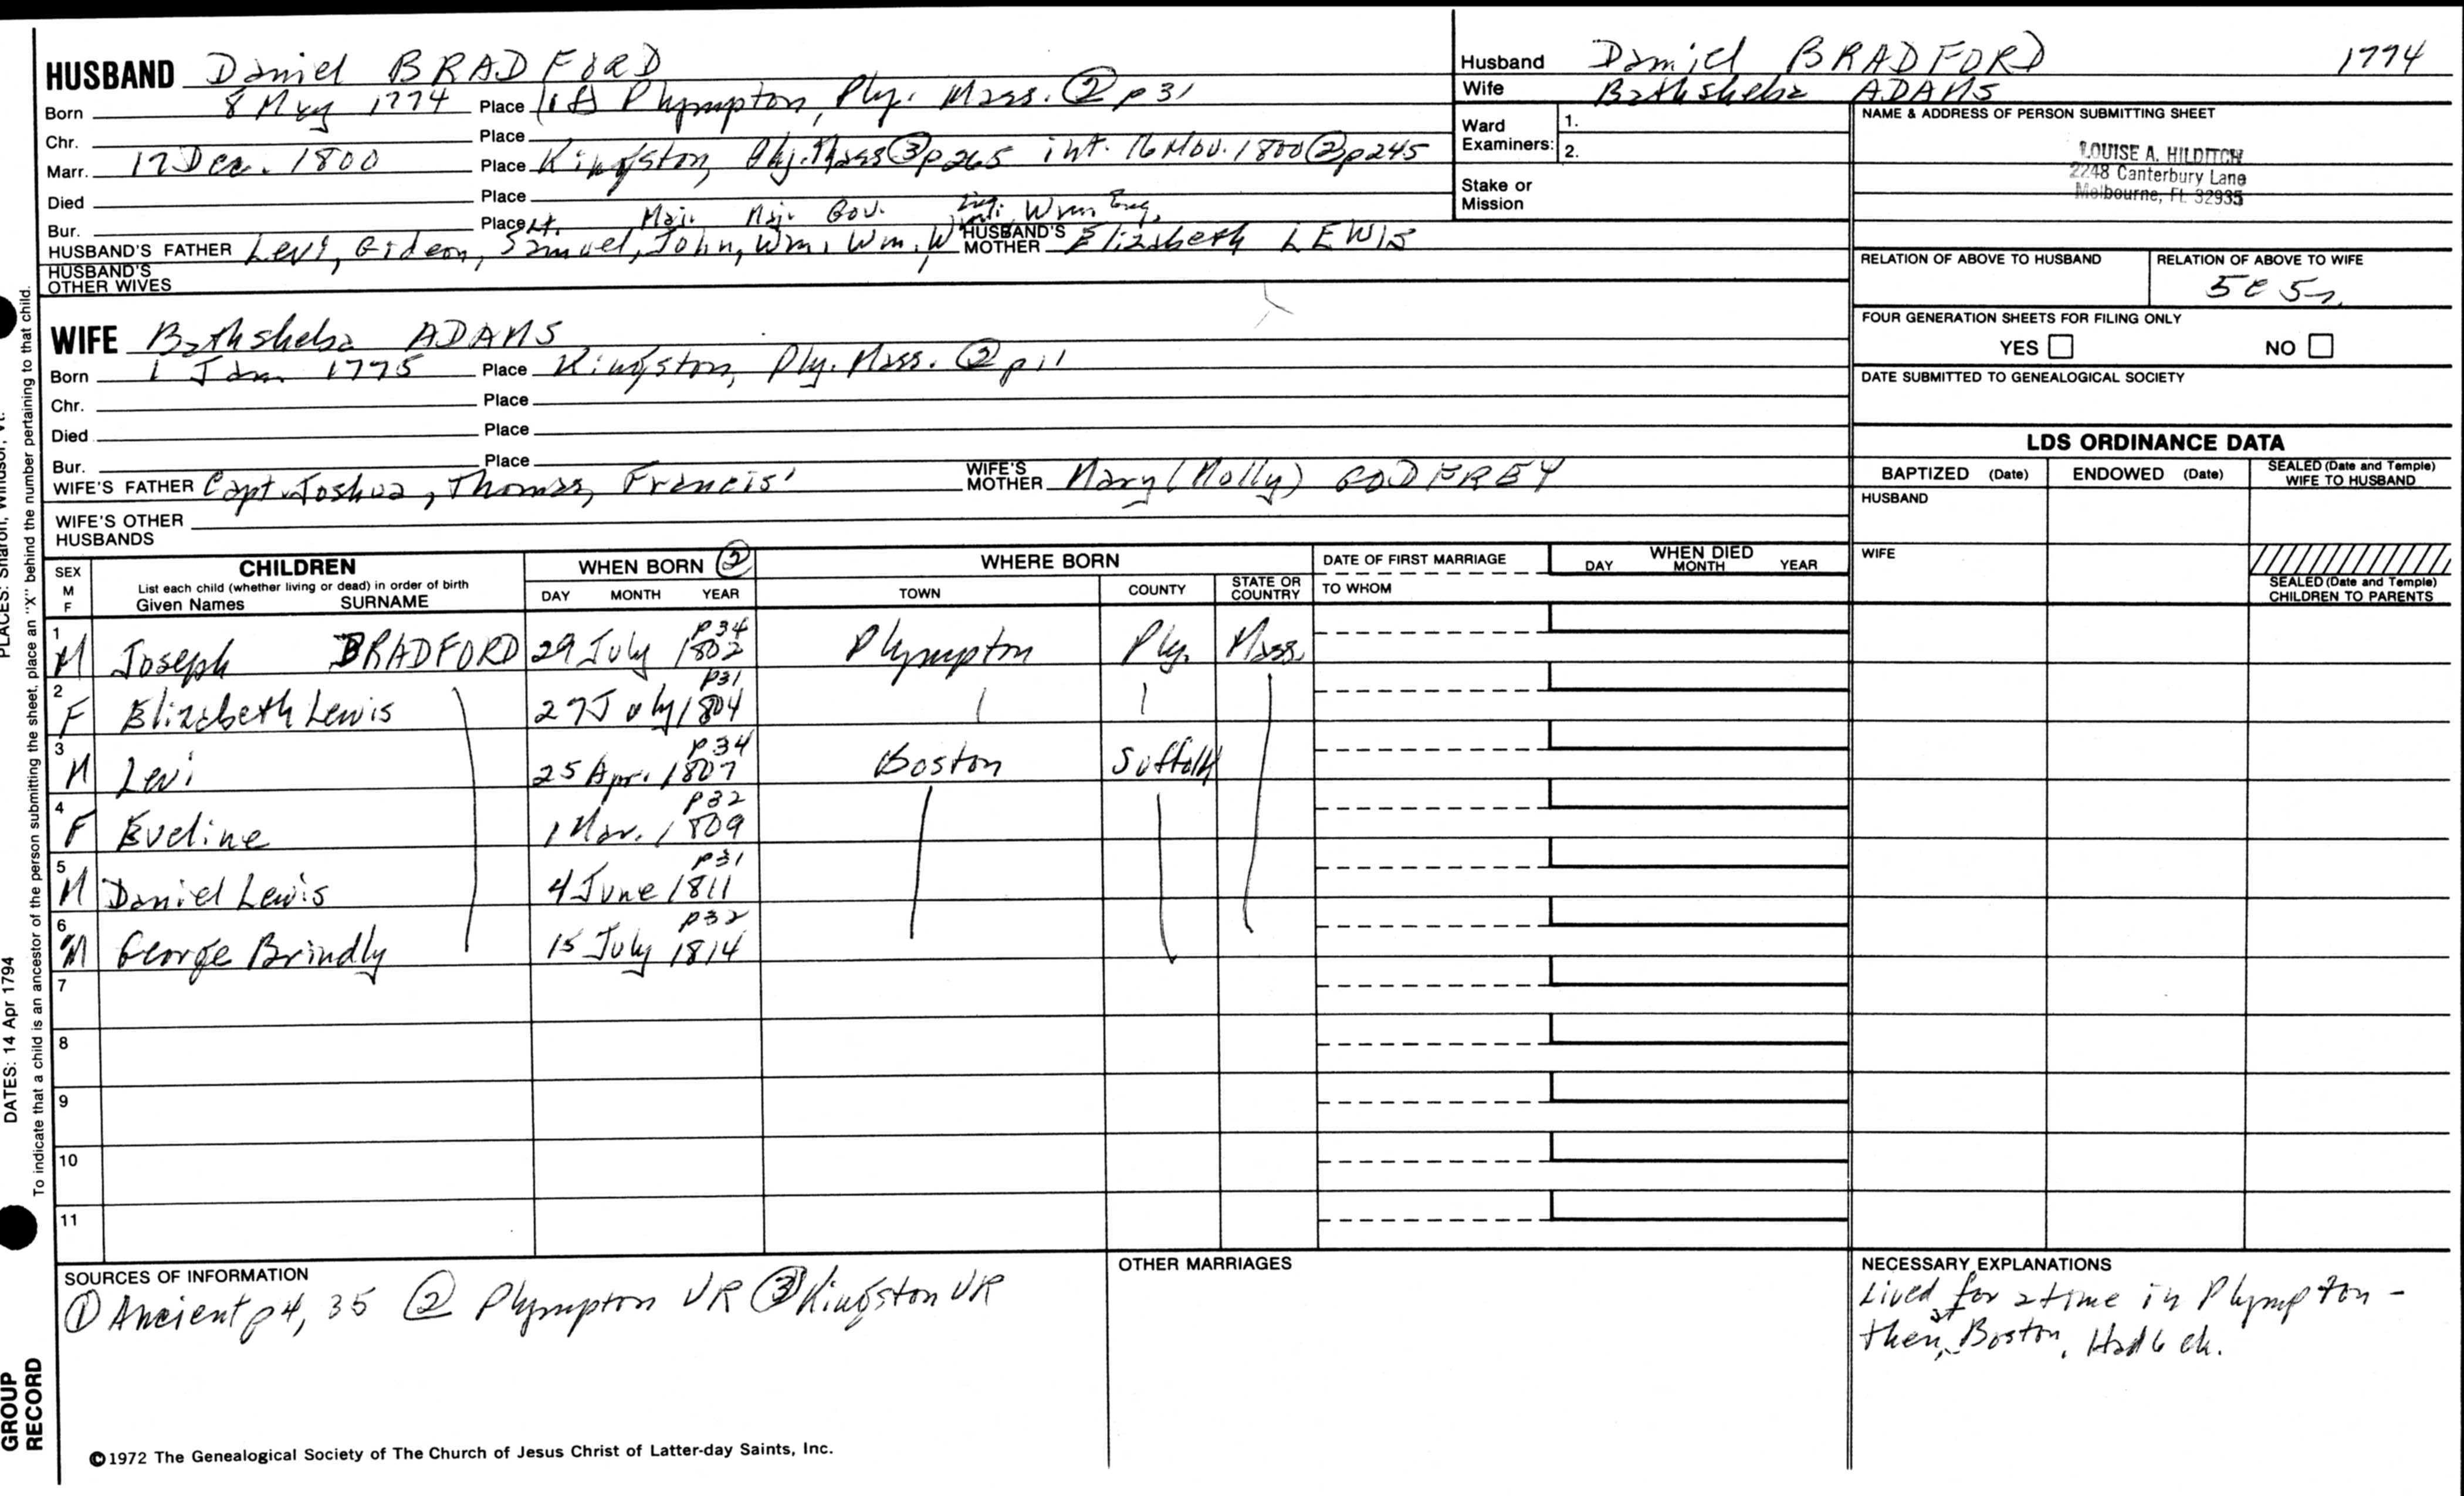 HUSBAND Daniel BRADFORD
Born 8 May 1774 Place Plympton, Ply. Mass. ② p31
Chr. Place
Marr. 17 Dec. 1800 Place Kingston, Ply. Mass ③ p265 int. 16 Nov. 1800 ② p245
Died Place
Bur. Place
Lt. Maj. Maj. Gov. Wm
HUSBAND'S FATHER Levi, Gideon, Samuel, John, Wm, Wm, W HUSBAND'S MOTHER Elizabeth LEWIS
HUSBAND'S OTHER WIVES
WIFE Bathsheba ADAMS
Born 1 Jan. 1775 Place Kingston, Ply. Mass. ② p11
Chr. Place
Died Place
Bur. Place
WIFE'S FATHER Capt. Joshua, Thomas, Francis' WIFE'S MOTHER Mary (Molly) GODFREY
WIFE'S OTHER HUSBANDS
Husband Daniel BRADFORD 1774
Wife Bathsheba ADAMS
Ward Examiners: 1.
2.
Stake or Mission
NAME & ADDRESS OF PERSON SUBMITTING SHEET
LOUISE A. HILDITCH
2248 Canterbury Lane
Melbourne, FL 32935
RELATION OF ABOVE TO HUSBAND RELATION OF ABOVE TO WIFE
FOUR GENERATION SHEETS FOR FILING ONLY
YES NO
DATE SUBMITTED TO GENEALOGICAL SOCIETY
LDS ORDINANCE DATA
BAPTIZED (Date) ENDOWED (Date) SEALED (Date and Temple) WIFE TO HUSBAND
HUSBAND
WIFE
SEALED (Date and Temple) CHILDREN TO PARENTS
SEX M F CHILDREN WHEN BORN ② WHERE BORN DATE OF FIRST MARRIAGE WHEN DIED
List each child (whether living or dead) in order of birth
Given Names SURNAME DAY MONTH YEAR TOWN COUNTY STATE OR COUNTRY TO WHOM DAY MONTH YEAR
p34
1 M Joseph BRADFORD 29 July 1802 Plympton Ply. Mass.
p31
2 F Elizabeth Lewis 27 July 1804
p34
3 M Levi 25 Apr. 1807 Boston Suffolk
p32
4 F Eveline 1 Mar. 1809
p31
5 M Daniel Lewis 4 June 1811
p32
6 M George Brindly 15 July 1814
7
8
9
10
11
SOURCES OF INFORMATION
① Ancient p4, 35 ② Plympton VR ③ Kingston VR
OTHER MARRIAGES
NECESSARY EXPLANATIONS
Lived for a time in Plympton -
then at Boston, Had 6 ch.
©1972 The Genealogical Society of The Church of Jesus Christ of Latter-day Saints, Inc.
PLACES: Sharon, Windsor, Vt.
DATES: 14 Apr 1794
To indicate that a child is an ancestor of the person submitting the sheet, place an "X" behind the number pertaining to that child.
GROUP
RECORD